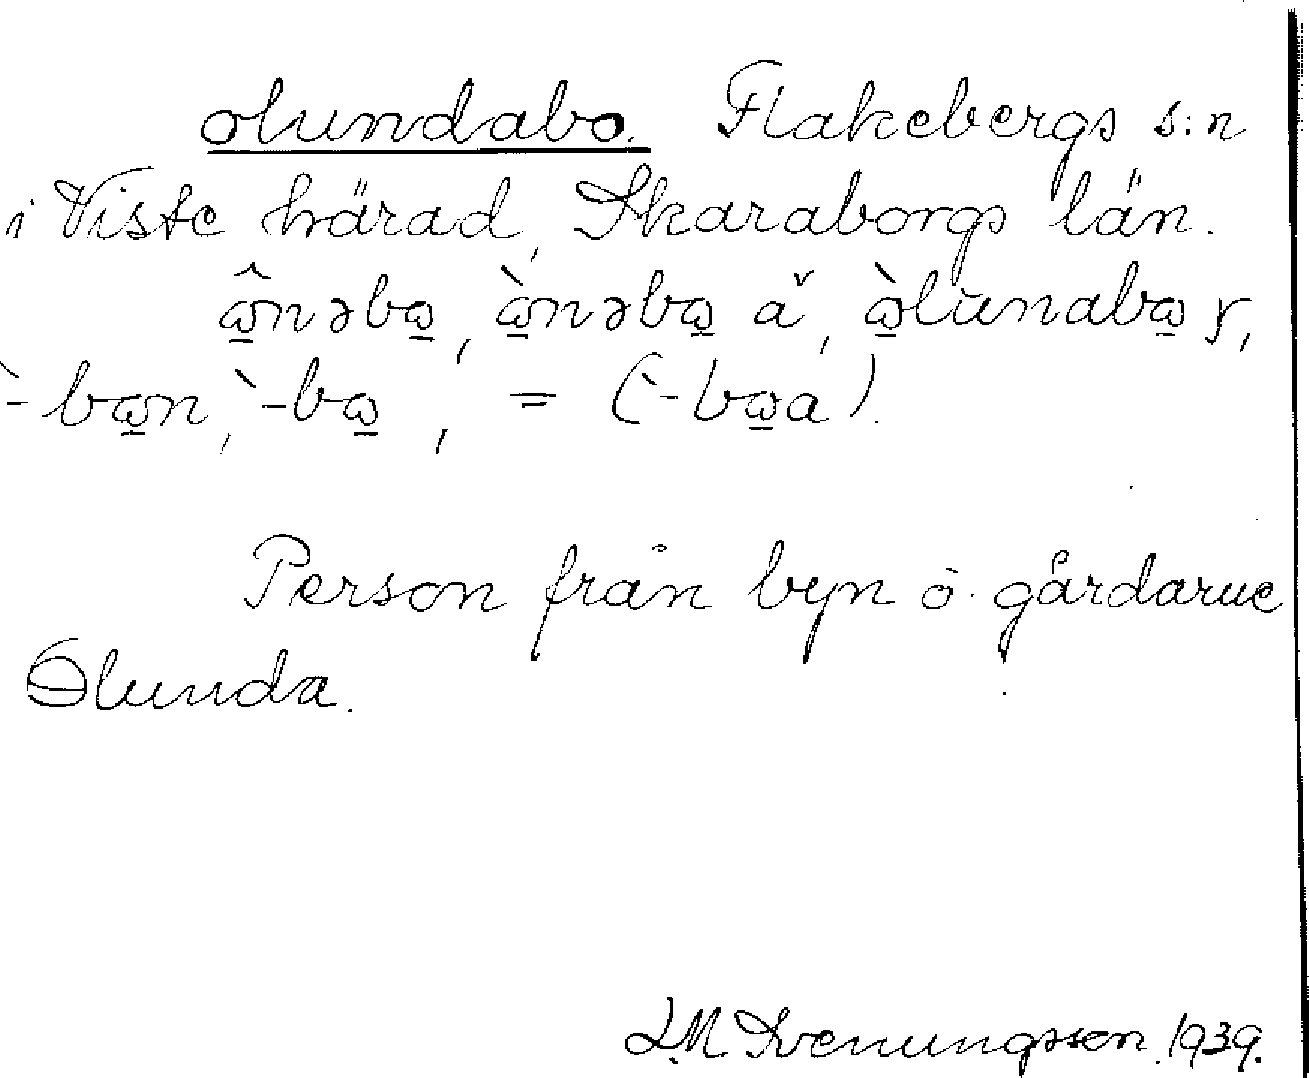 olundabo. Flakebergs s:n
i Viste härad, Skaraborgs län.
ω̂nəbω, ὼnəbω ǎ, ὼlunabω ɼ,
`-bωn, `-bω, = (`-bωa).
Person från byn o. gårdarne
Olunda.
L.M. Svenungsson. 1939.